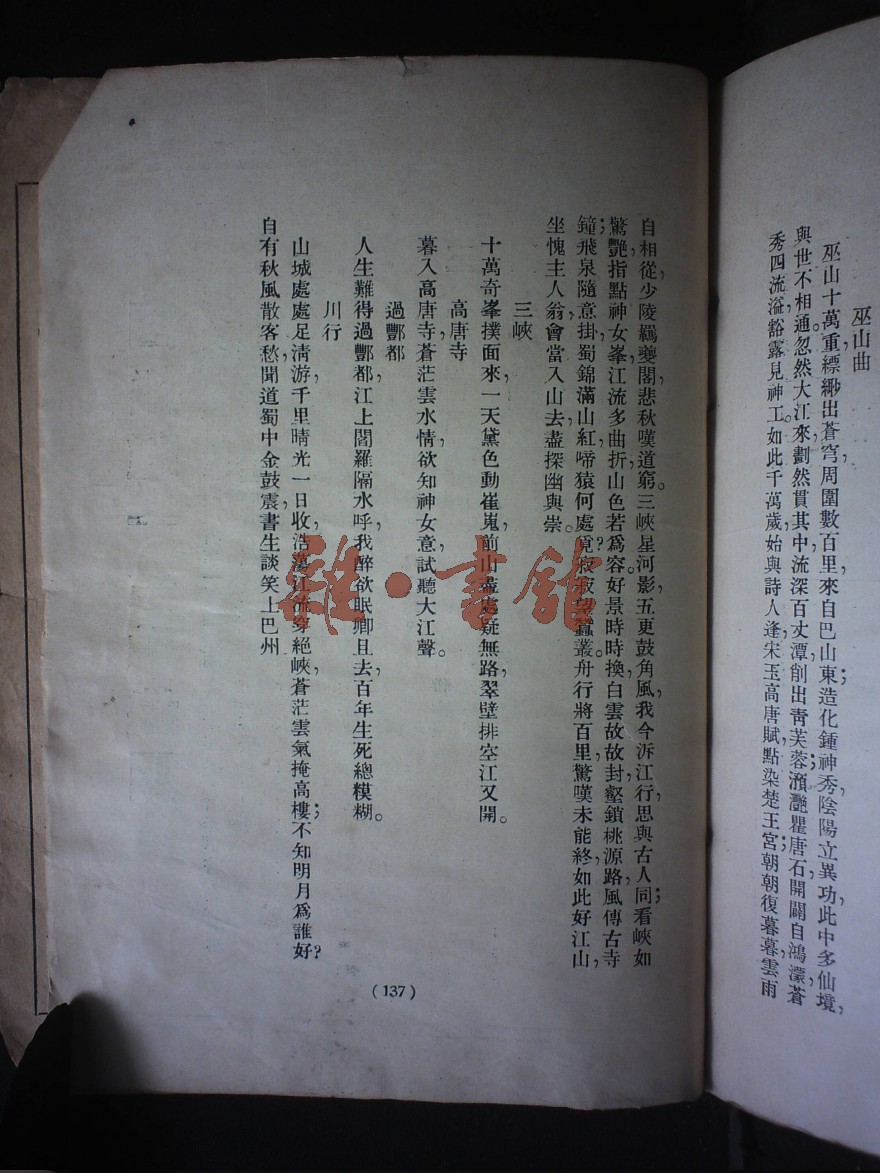 巫山曲
巫山十萬重,縹緲出蒼穹,周圍數百里,來自巴山東;造化鍾神秀,陰陽立異功,此中多仙境,
與世不相通。忽然大江來,劃然貫其中,流深百丈潭,削出青芙蓉;灔瞿唐石,開闢自鴻濛,蒼
秀四流溢,豁露見神工。如此千萬歲,始與詩人逢,宋玉高唐賦,點染楚王宮;朝朝復暮暮,雲雨
自相從,少陵羈夔閣,悲秋嘆道窮。三峽星河影,五更鼓角風,我今泝江行,思與古人同;看峽如
驚艷,指點神女峯,江流多曲折,山色若爲容。好景時時換,白雲故故封,壑鎖桃源路,風傳古寺
鐘;飛泉隨意掛,蜀錦滿山紅,啼猿何處覓?寂寂望蠶叢。舟行將百里,驚嘆未能終,如此好江山,
坐愧主人翁,會當入山去,盡探幽與崇。
三峽
十萬奇峯撲面來,一天黛色動崔嵬,前山盡處疑無路,翠壁排空江又開。
高唐寺
暮入高唐寺,蒼茫雲水情,欲知神女意,試聽大江聲。
過酆都
人生難得過酆都,江上閻羅隔水呼,我醉欲眠卿且去,百年生死總糢糊。
川行
山城處處足清游,千里晴光一日收,浩蕩江流穿絕峽,蒼茫雲氣掩高樓;不知明月爲誰好?
自有秋風散客愁,聞道蜀中金鼓震,書生談笑上巴州
(137)
雜·書館